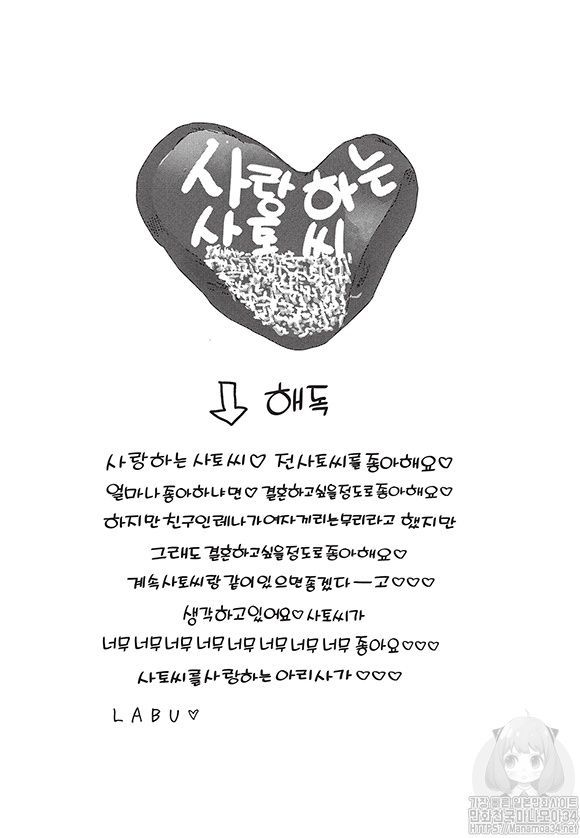 사랑하는
사토 씨
해독
사랑하는 사토씨♡ 전 사토씨를 좋아해요♡
얼마나 좋아하냐면♡결혼하고싶을정도로좋아해요♡
하지만 친구인 레나가 여자끼리는무리라고 했지만
그래도 결혼하고싶을정도로좋아해요♡
계속 사토씨랑 같이 있으면좋겠다ー고♡♡♡
생각하고있어요♡사토씨가
너무 너무 너무 너무 너무 너무 너무 너무 좋아요♡♡♡
사토씨를 사랑하는 아리사가 ♡♡♡
LABU♡
가장빠른 일본만화사이트
만화천국마나모아34
HTTPS://Manamoa34.com